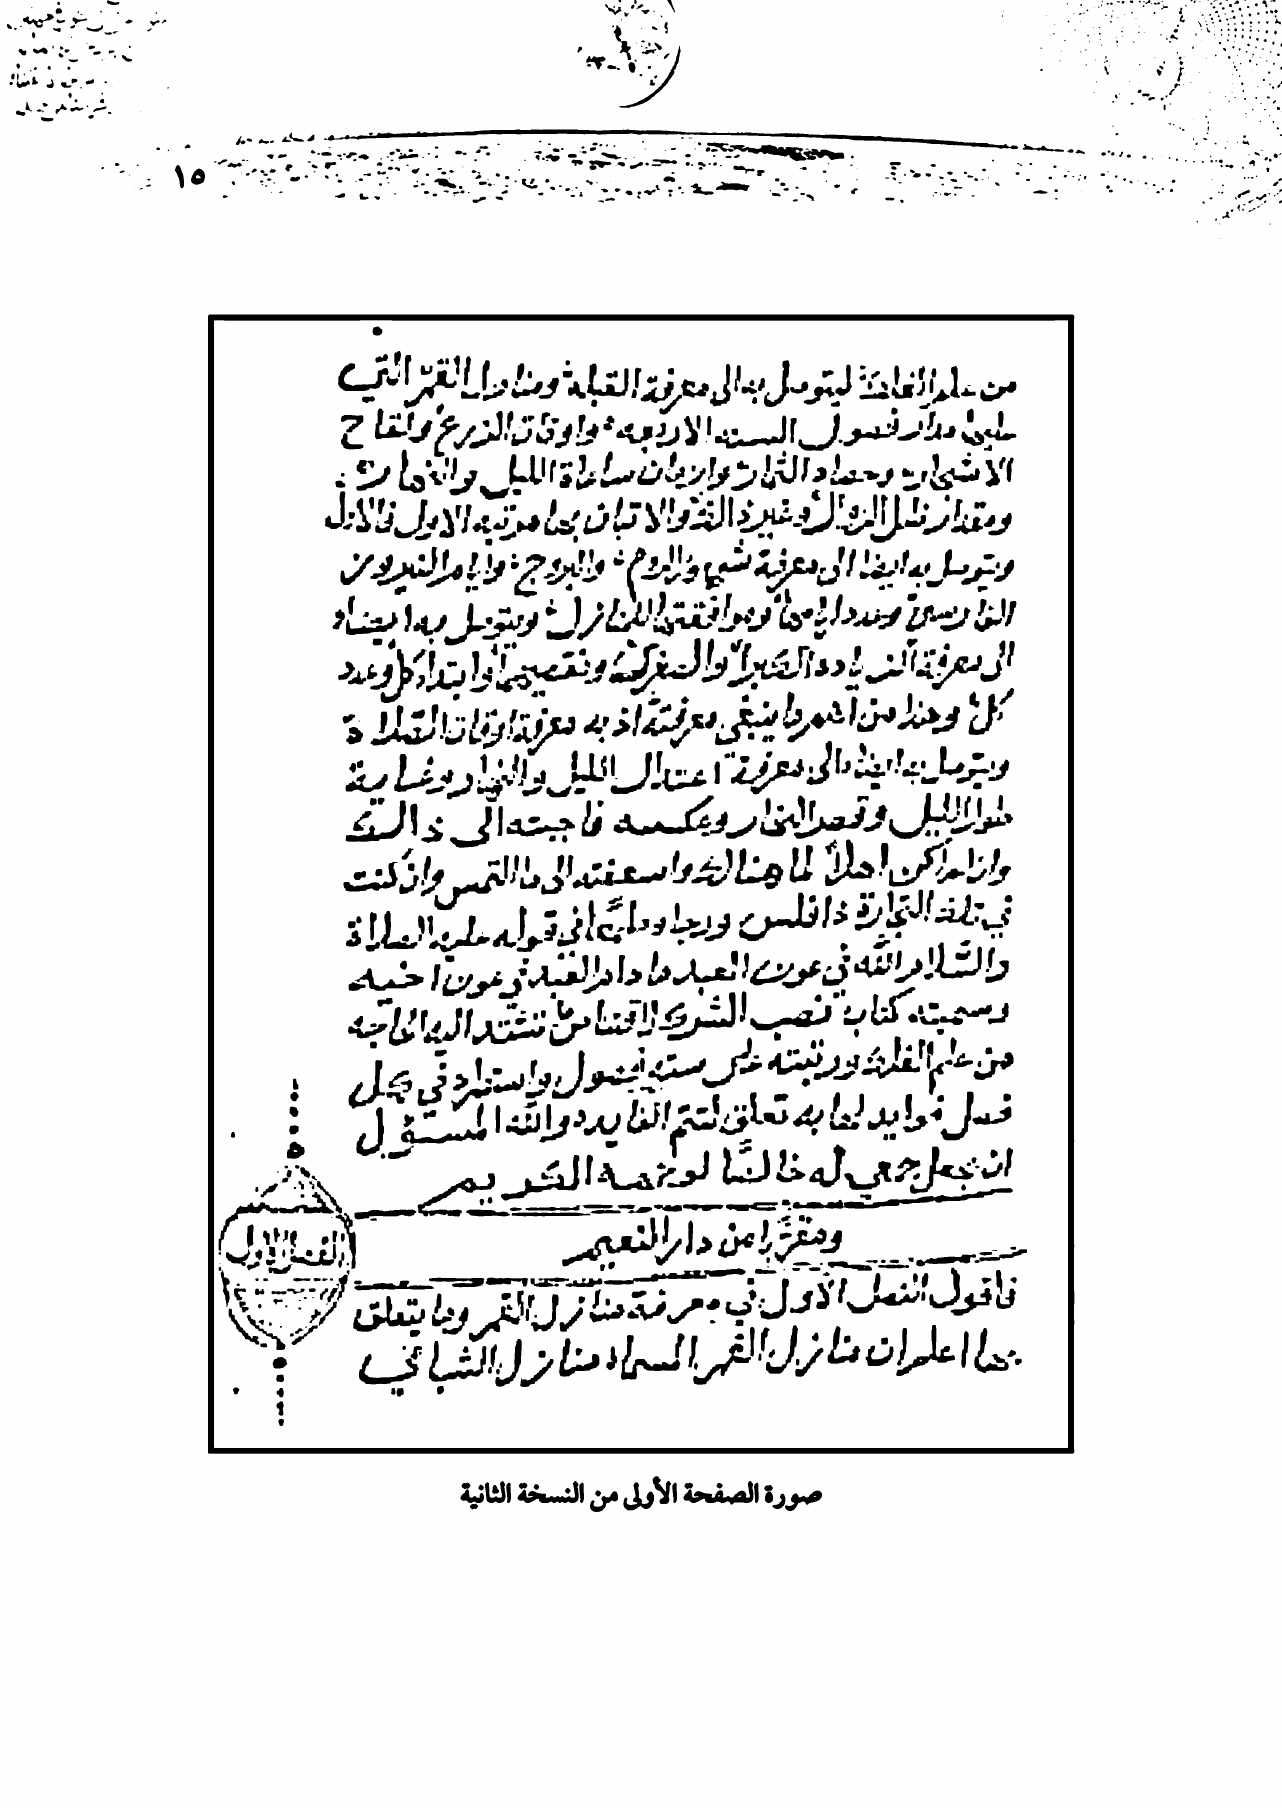 ١٥
من علم الفلك ليتوصل به الى معرفة القبلة ومنازل القمر التي
على مدار فصول السنه الاربعه واوقات الزرع ولقاح
الاشجار وحصاد الثمار وازمان ساعاة الليل والنهار
ومقدار ظل الزوال وغير ذالك والاتيان بما مرتبه الاول فالاول
ويتوصل به ايضا الى معرفة شهور الروم والبروج وايام النيروز
الفارسي وعدد ايامها وموافقتها للمنازل ويتوصل به ايضاء
الى معرفة الشعرى
كل وهذا من اهم ما ينبغي معرفته اذ به معرفة اوقات الصلاة
ويتوصل به ايضا الى معرفة اعتدال الليل والنهار وغاية
طول الليل وقصر النهار وعكسه فاجبته الى ذالك
وان لم اكن اهلاً لما هنالك واسعفته الى ما التمس وان كنت
في تلك التجارة ذا فلس ورجا وطمعا في قوله عليه الصلاة
والسلام الله في عون العبد ما دام العبد في عون اخيه
وسميته كتاب نصب الشرك لاقتناص ما تشتد اليه الحاجه
من علم الفلك ورتبته على سته فصول واستطرد في كل
فصل فوايد لها به تعلق لتتم الفايده والله المسئول
ان يجعل جمعي له خالصا لوجهه الكريم
ومقربا من دار النعيم
الفصل الاول
فاقول الفصل الاول في معرفة منازل القمر وما يتعلق
بها اعلم ان منازل القمر المسماه منازل الشبامي
صورة الصفحة الأولى من النسخة الثانية